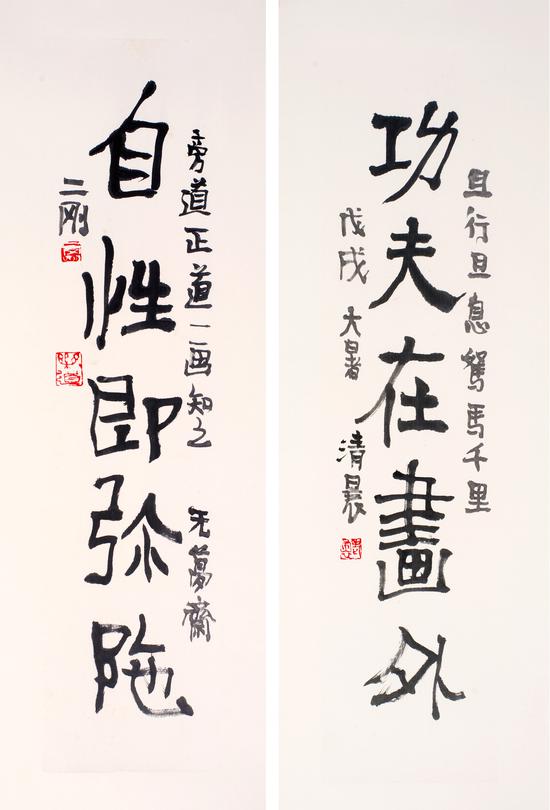 且行且息駑馬千里
功夫在畫外
戊戌 大暑 清晨
旁道正道一画知之 午夢齋
自性即弥陁
二刚